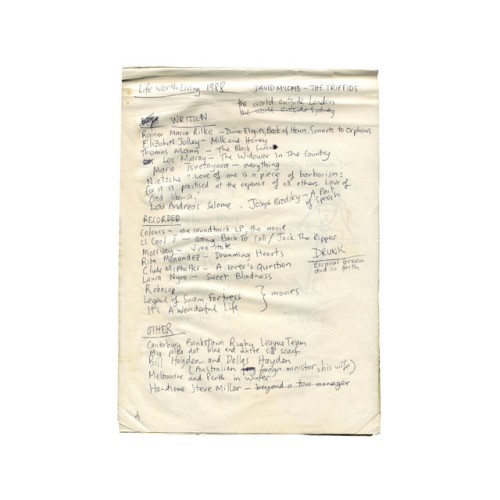 Life Worth Living 1988 DAVID McCOMB - THE TRIFFIDS
the world outside London
the world outside Sydney
WRITTEN
Rainer Maria Rilke - Duino Elegies, Book of Hours, Sonnets to Orpheus
Elizabeth Jolley - Milk and Honey
Thomas Mann - The Black Swan
Les Murray - The Widower In The Country
Marie Tsvetayeva - everything
Nietzsche "Love of one is a piece of barbarism:
for it is practised at the expense of all others. Love of
God likewise."
Lou Andreas Salome. Joseph Brodsky - A Part
of Speech
RECORDED
Colours - the soundtrack LP, the movie
LL Cool J - Going Back To Cali / Jack The Ripper
Morrissey - Viva Hate
DRUNK
Rita Menendez - Drumming Hearts
Escorial Green
and so forth
Clyde McPhatter - A Lover's Question
Laura Nyro - Sweet Blindness
Robocop
Legend of Suram Fortress } movies
It's A Wonderful Life
OTHER
Canterbury Bankstown Rugby League Team
My polka dot blue and white silk scarf
Bill Hayden and Dallas Hayden
(Australian foreign minister & his wife)
Melbourne and Perth in Winter
Handsome Steve Miller - beyond a tour manager